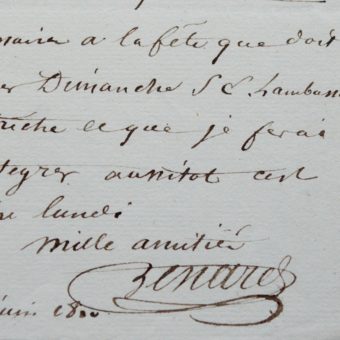 ssaire a la fête que doit
er Dimanche S E Lambass
triche ce que je ferai
tegrer aussitot cest
lundi
mille amitiés
Benard
juin 18